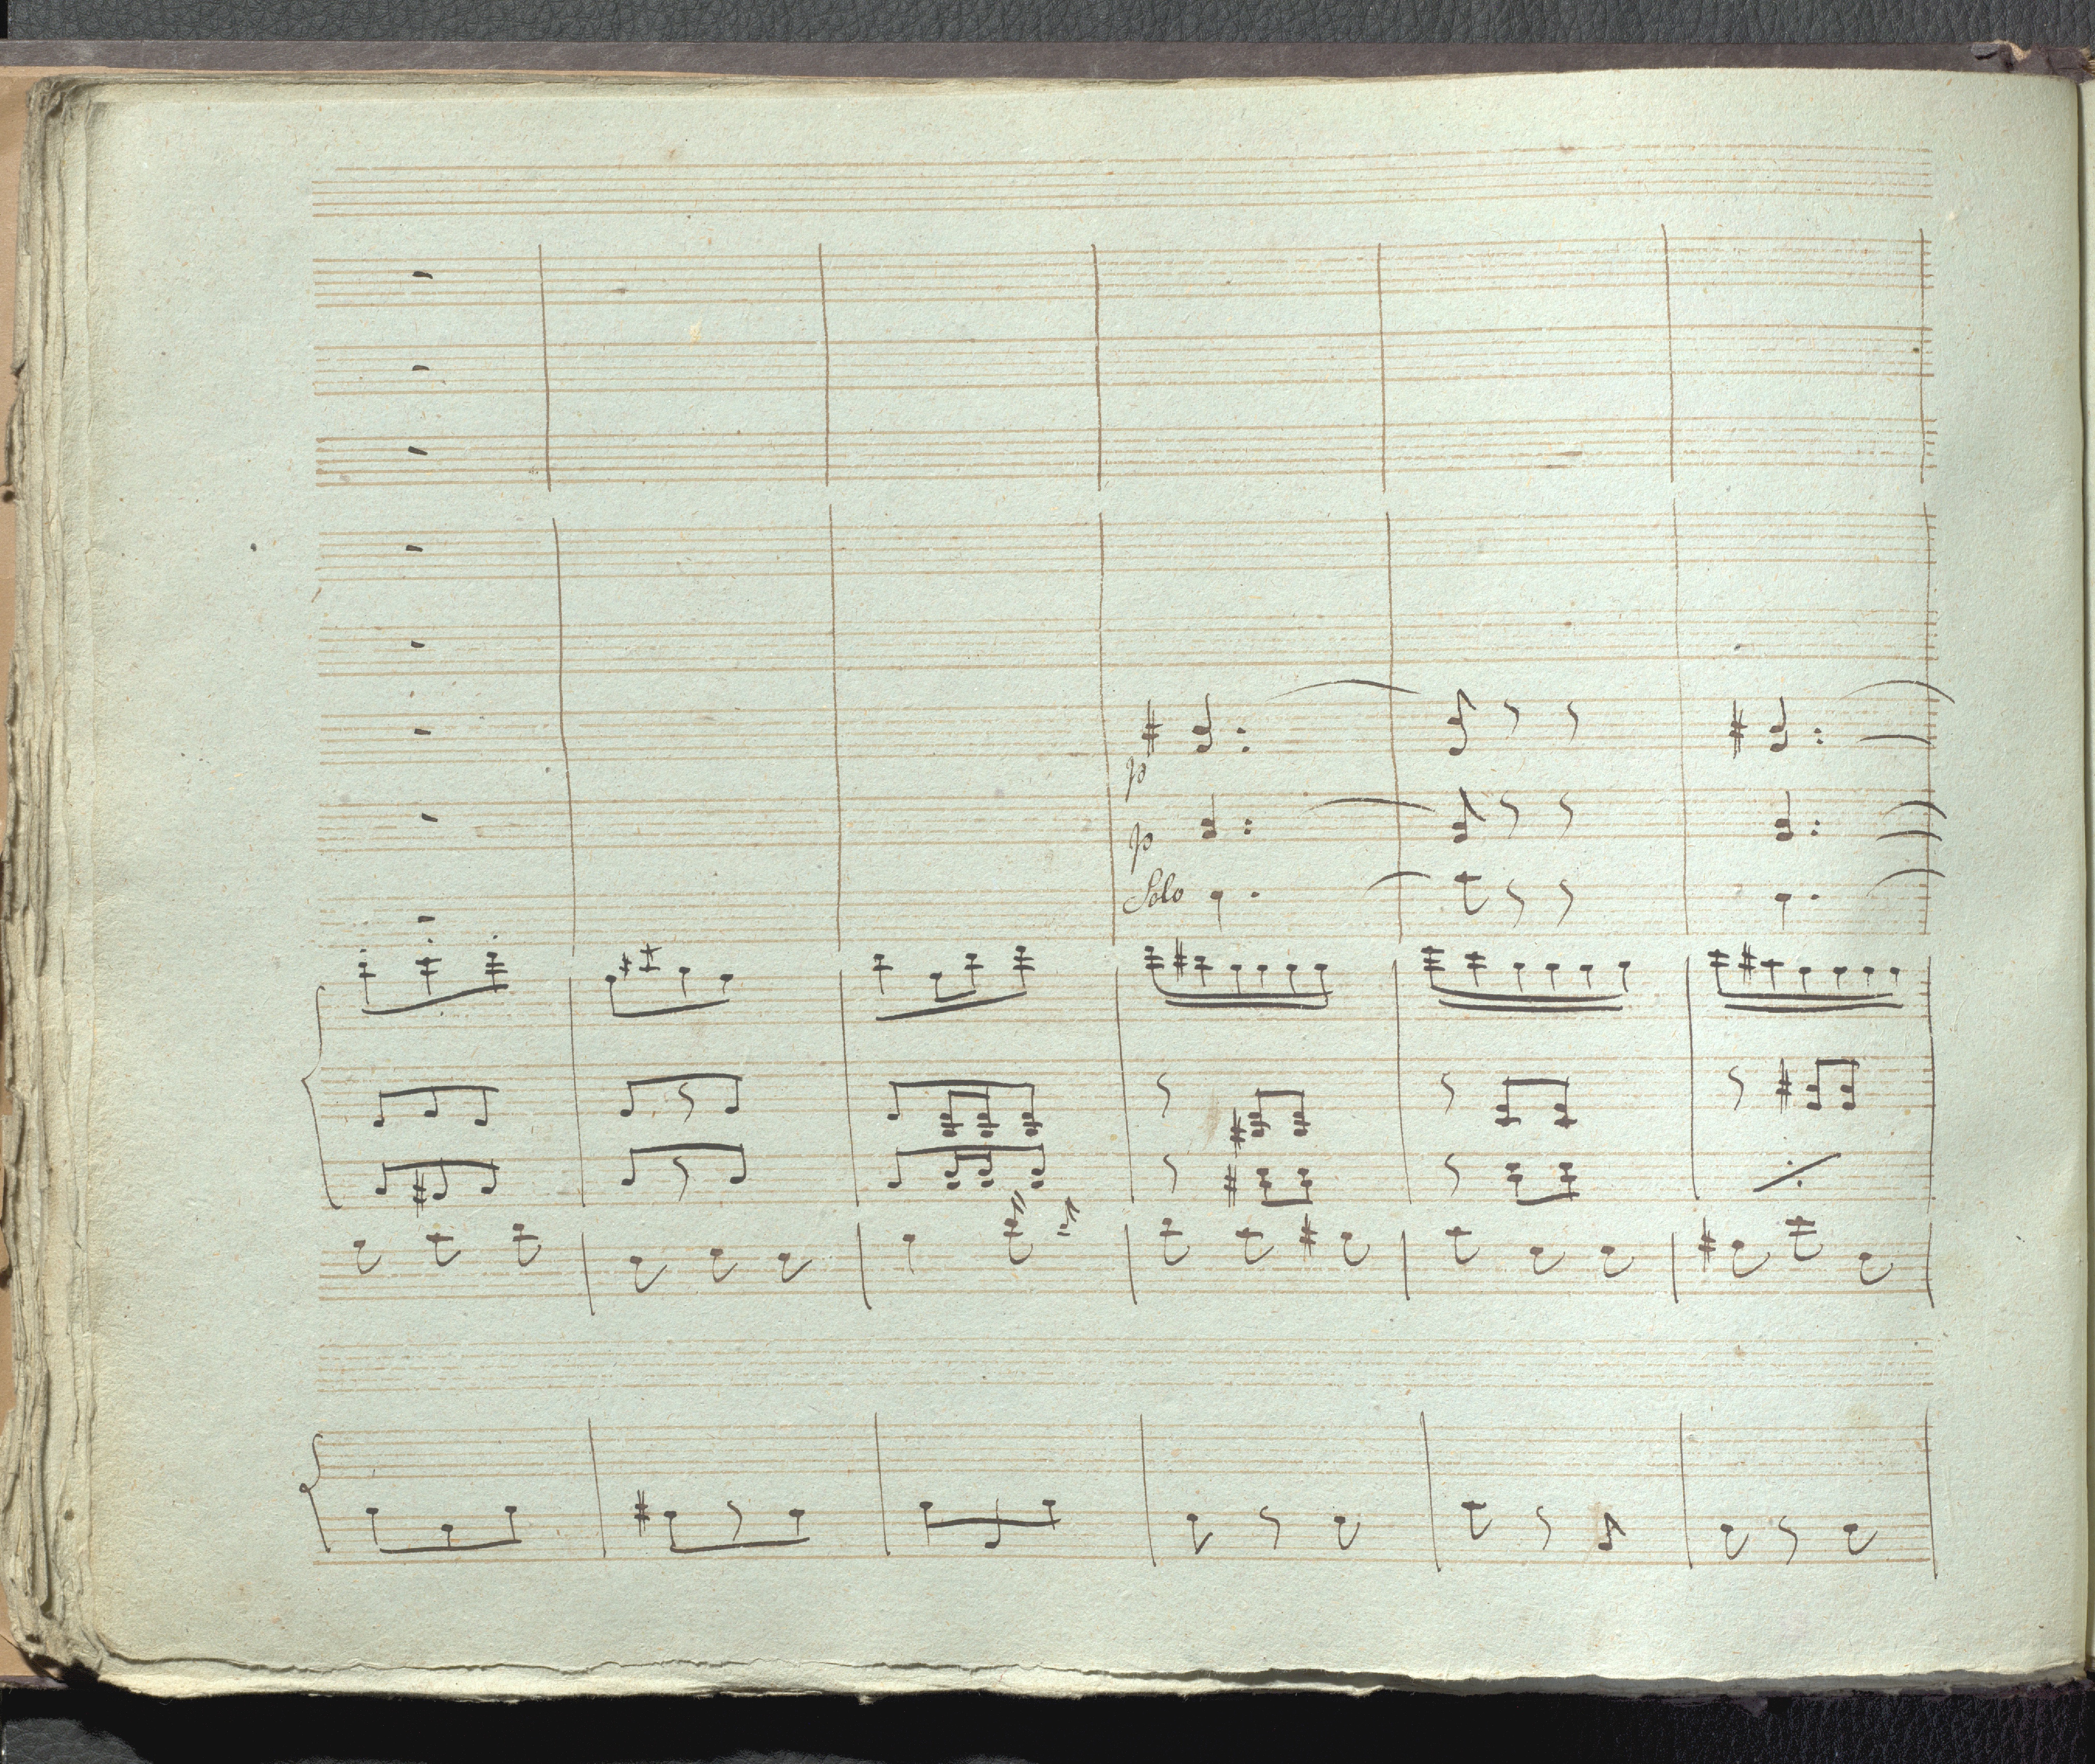 p
p
Solo